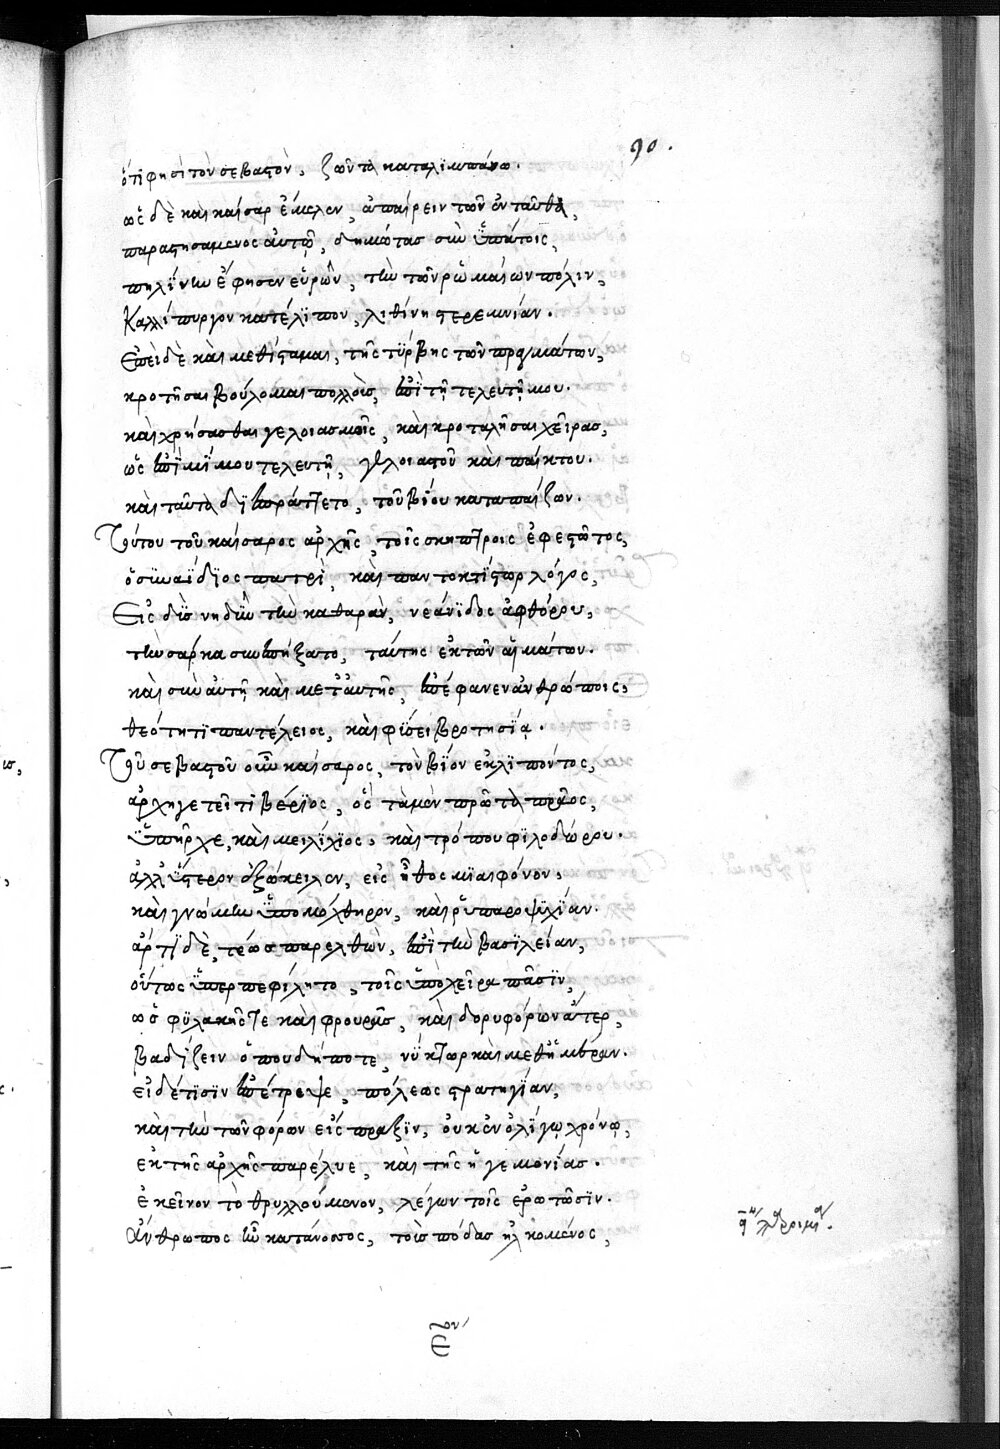 90.
ὅτι φησὶ τὸν σεβαστὸν, ζῶντα καταλιμπάνω.
ὡς δὲ καὶ καῖσαρ ἔμελεν, ἀπαίρειν τῶν ἐνταῦθα,
παραστησάμενος αὐτῷ, δημώτας σὺν ὑπάτοις,
πηλίνην ἔφησεν εὑρὼν, τὴν τῶν ῥωμαίων πόλιν,
Καλλίπυργον κατέλιπον, λιθίνην στερεμνίαν.
Ἐπεὶ δὲ καὶ μεθίσταμαι, τῆς τύρβης τῶν πραγμάτων,
κροτῆσαι βούλομαι πολλοῖς, ἐπὶ τῇ τελευτῇ μου.
καὶ χρήσασθαι γελοιασμοῖς, καὶ κροταλῆσαι χεῖρας,
ὡς ἐπὶ μίμου τελευτῇ, γελοιαστοῦ καὶ παίκτου.
καὶ ταῦτα δι ἐπράττετο, τοῦ βίου καταπαίζων.
Τούτου τοῦ καίσαρος ἀρχῆς, τοῖς σκήπτροις ἐφεστῶτος,
ὁ συναΐδιος πατρὶ, καὶ παντοκτίστωρ λόγος,
Εἰσδὺς νηδὺν τὴν καθαρὰν, νεάνιδος ἀφθόρου,
τὴν σάρκα συνεπήξατο, ταύτης ἐκ τῶν αἱμάτων.
καὶ σὺν αὐτῇ καὶ μετ αὐτῆς, ἐπέφανεν ἀνθρώποις,
θεότητι παντέλειος, καὶ φύσει βροτησίᾳ.
Τοῦ σεβαστοῦ οὖν καίσαρος, τὸν βίον ἐκλιπόντος,
ἀρχηγετεῖ τιβέριος, ὃς τὰ μὲν πρῶτα πρᾶος,
ὑπῆρχε, καὶ μειλίχιος, καὶ τρόπου φιλοδώρου.
ἀλλ ὕστερον ἐξώκειλεν, εἰς ἦθος μιαιφόνον,
καὶ γνώμην ὑπομόχθηρον, καὶ ῥυπαροψυχίαν.
ἄρτι δὲ, τέως παρελθὼν, ἐπὶ τὴν βασιλείαν,
οὕτως ὑπερπεφίλητο, τοῖς ὑπὸ χεῖρα πᾶσιν,
ὡς φυλακῆς τε καὶ φρουρᾶς, καὶ δορυφόρων ἄτερ,
βαδίζειν ὅπου δήποτε, νύκτωρ καὶ μεθ ἡμέραν.
εἰ δέ τισιν ἐπέτρεψε, πόλεως στρατηγίαν,
καὶ τὴν τῶν φόρων εἴσπραξιν, οὐκ ἐν ὀλίγῳ χρόνῳ,
ἐκ τῆς ἀρχῆς παρέλυε, καὶ τῆς ἡγεμονίας.
ἐκεῖνον τὸ θρυλλούμενον, λέγων τοῖς ἐρωτῶσιν.
Ἄνθρωπος ὢν κατάνοσος, τοὺς πόδας ἡλκομένος,